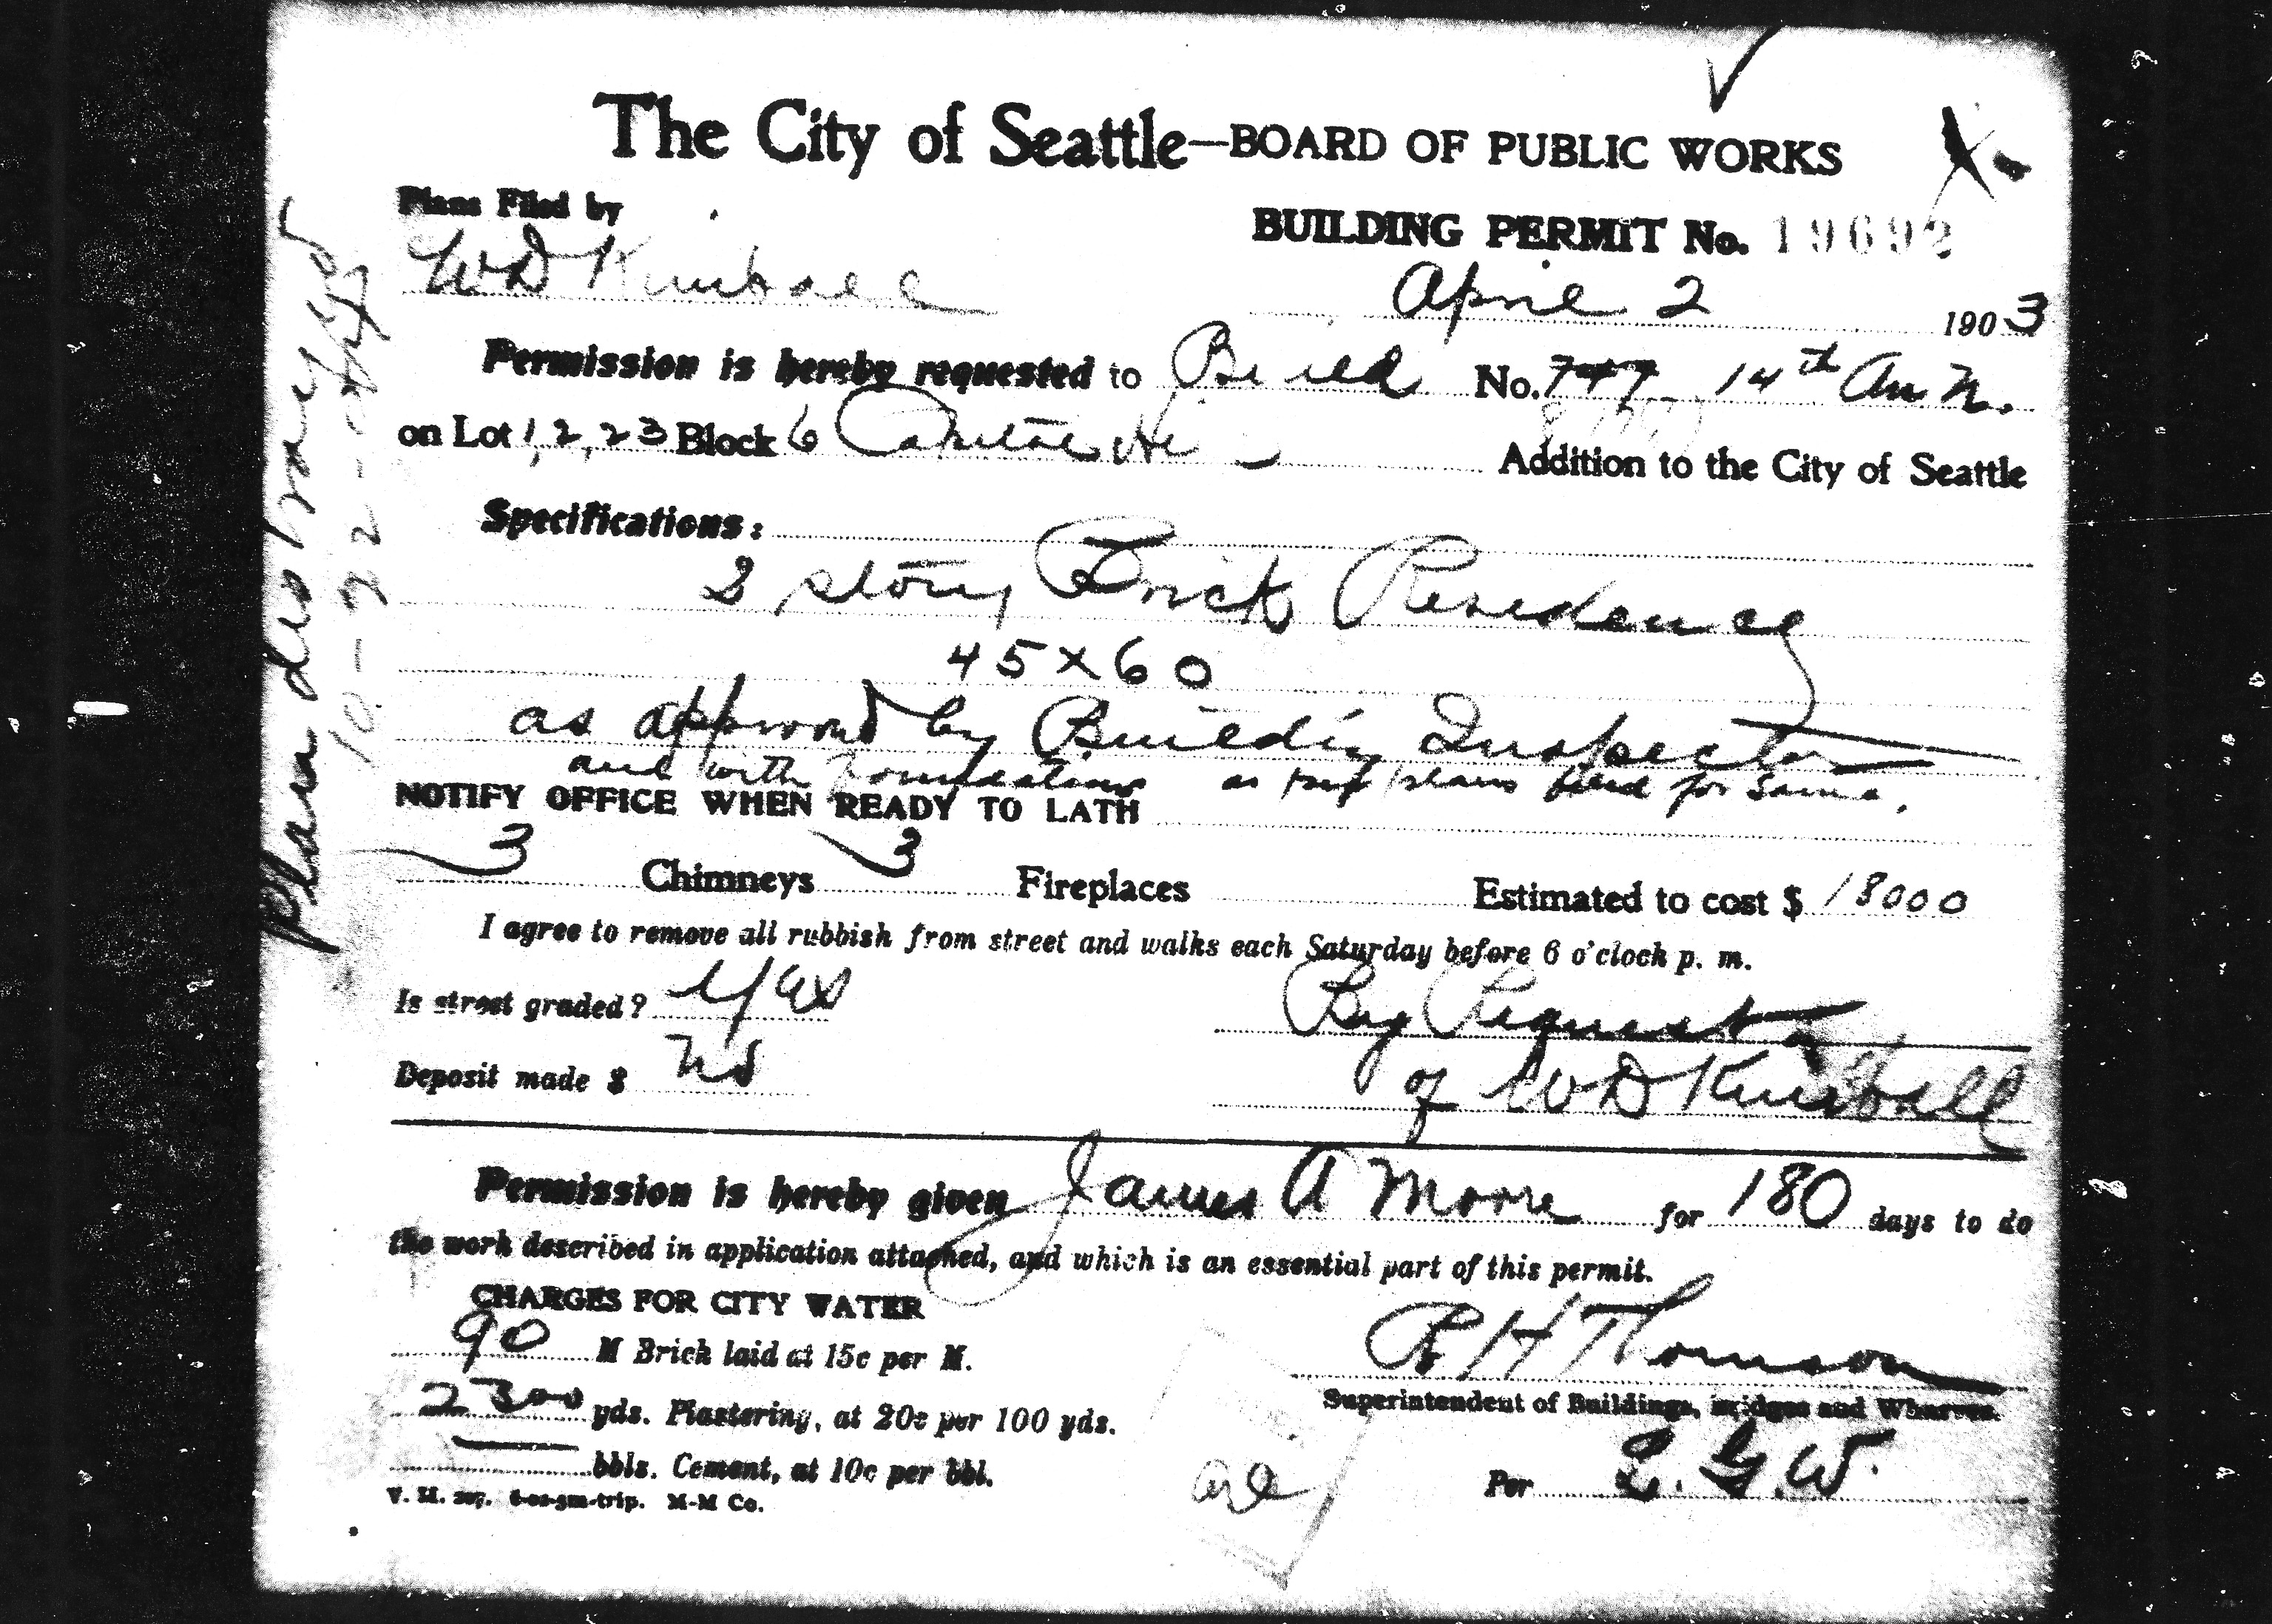 The City of Seattle—BOARD OF PUBLIC WORKS
Plans Filed by
W D Kimball
BUILDING PERMIT No. 19692
April 2 1903
Permission is hereby requested to Build No. 747 14th Av N.
on Lot 1, 2, 23 Block 6 Capitol Hi Addition to the City of Seattle
Specifications:
2 story Brick Residence
45 x 60
as approved by Building Inspector
and with foundations as per plans filed for same.
NOTIFY OFFICE WHEN READY TO LATH
3 Chimneys 3 Fireplaces Estimated to cost $ 18000
I agree to remove all rubbish from street and walks each Saturday before 6 o'clock p. m.
Is street graded? Yes
By Request
Deposit made $ no
of W D Kimball
Permission is hereby given James A Moore for 180 days to do
the work described in application attached, and which is an essential part of this permit.
CHARGES FOR CITY WATER
90 M Brick laid at 15c per M.
R H Thomson
Superintendent of Buildings, Bridges and Wharves.
2300 yds. Plastering, at 20c per 100 yds.
bbls. Cement, at 10c per bbl.
Per
V. M. M-M Co.
Plan destroyed
10-22-